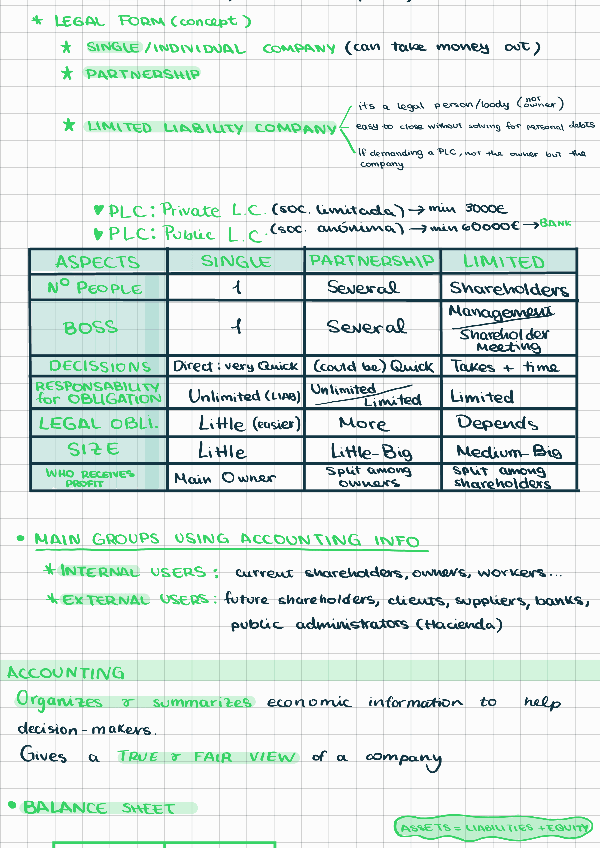 * LEGAL FORM (concept)
* SINGLE/INDIVIDUAL COMPANY (can take money out)
* PARTNERSHIP
its a legal person/body (not owner)
* LIMITED LIABILITY COMPANY
easy to close without solving for personal debts
If demanding a PLC, not the owner but the
company
♥ PLC: Private L.C. (soc. limitada) → min 3000€
♥ PLC: Public L.C. (soc. anónima) → min 60000€ → BANK
ASPECTS SINGLE PARTNERSHIP LIMITED
Nº PEOPLE 1 Several Shareholders
BOSS 1 Several Management / Shareholder Meeting
DECISSIONS Direct: very Quick (could be) Quick Takes + time
RESPONSABILITY for OBLIGATION Unlimited (LIAB) Unlimited / Limited Limited
LEGAL OBLI. Little (easier) More Depends
SIZE Little Little-Big Medium-Big
WHO RECEIVES PROFIT Main Owner Split among owners Split among shareholders
• MAIN GROUPS USING ACCOUNTING INFO
* INTERNAL USERS: current shareholders, owners, workers...
* EXTERNAL USERS: future shareholders, clients, suppliers, banks,
public administrators (Hacienda)
ACCOUNTING
Organizes & summarizes economic information to help
decision-makers.
Gives a TRUE & FAIR VIEW of a company
• BALANCE SHEET
ASSETS = LIABILITIES + EQUITY